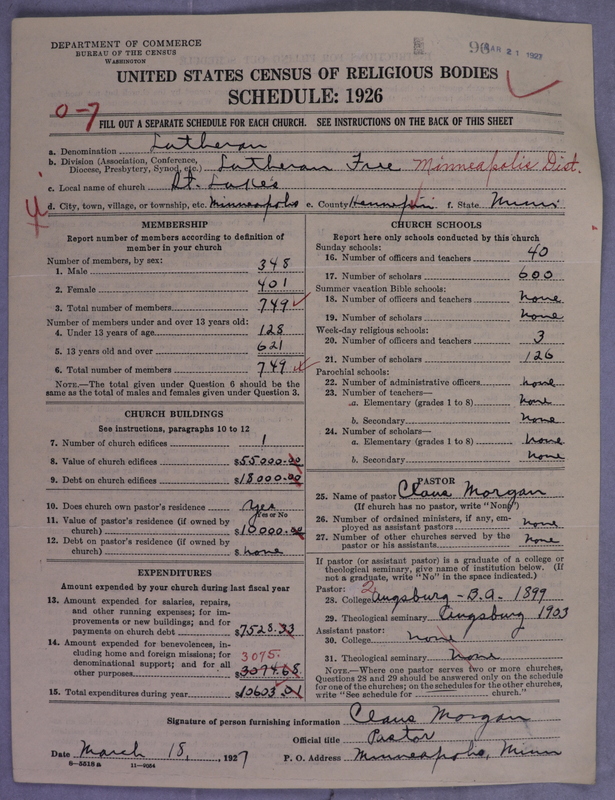 DEPARTMENT OF COMMERCE
BUREAU OF THE CENSUS
WASHINGTON
MAR 21 1927
UNITED STATES CENSUS OF RELIGIOUS BODIES
SCHEDULE: 1926
0-7
FILL OUT A SEPARATE SCHEDULE FOR EACH CHURCH. SEE INSTRUCTIONS ON THE BACK OF THIS SHEET
a. Denomination Lutheran
b. Division (Association, Conference, Diocese, Presbytery, Synod, etc.) Lutheran Free Minneapolis Dist.
c. Local name of church St. Lukes
d. City, town, village, or township, etc. Minneapolis e. County Hennepin f. State Minn
MEMBERSHIP
Report number of members according to definition of
member in your church
Number of members, by sex:
1. Male 348
2. Female 401
3. Total number of members 749
Number of members under and over 13 years old:
4. Under 13 years of age 128
5. 13 years old and over 621
6. Total number of members 749
NOTE.—The total given under Question 6 should be the
same as the total of males and females given under Question 3.
CHURCH BUILDINGS
See instructions, paragraphs 10 to 12
7. Number of church edifices 1
8. Value of church edifices $55000.00
9. Debt on church edifices $18000.00
10. Does church own pastor's residence Yes
Yes or No
11. Value of pastor's residence (if owned by
church) $10000.00
12. Debt on pastor's residence (if owned by
church) $ none
EXPENDITURES
Amount expended by your church during last fiscal year
13. Amount expended for salaries, repairs,
and other running expenses; for im-
provements or new building; and for
payments on church debt $7528.33
14. Amount expended for benevolences, in-
cluding home and foreign missions; for
denominational support; and for all
other purposes 3075. $3074.68
15. Total expenditures during year $10603.01
CHURCH SCHOOLS
Report here only schools conducted by this church
Sunday schools:
16. Number of officers and teachers 40
17. Number of scholars 600
Summer vacation Bible schools:
18. Number of officers and teachers none
19. Number of scholars none
Week-day religious schools:
20. Number of officers and teachers 3
21. Number of scholars 126
Parochial schools:
22. Number of administrative officers none
23. Number of teachers—
a. Elementary (grades 1 to 8) none
b. Secondary none
24. Number of scholars—
a. Elementary (grades 1 to 8) none
b. Secondary none
PASTOR
25. Name of pastor Claus Morgan
(If church has no pastor, write "None")
26. Number of ordained ministers, if any, em-
ployed as assistant pastors none
27. Number of other churches served by the
pastor or his assistants none
If pastor (or assistant pastor) is a graduate of a college or
theological seminary, give name of institution below. (If
not a graduate, write "No" in the space indicated.)
Pastor: 2
28. College Augsburg - B.A. 1899
29. Theological seminary Augsburg 1903
Assistant pastor:
30. College none
31. Theological seminary none
NOTE.—Where one pastor serves two or more churches,
Questions 28 and 29 should be answered only on the schedule
for one of the churches; on the schedules for the other churches,
write "See schedule for church."
Signature of person furnishing information Claus Morgan
Official title Pastor
Date March 18, 1927 P. O. Address Minneapolis, Minn
8-5518a 11-9554